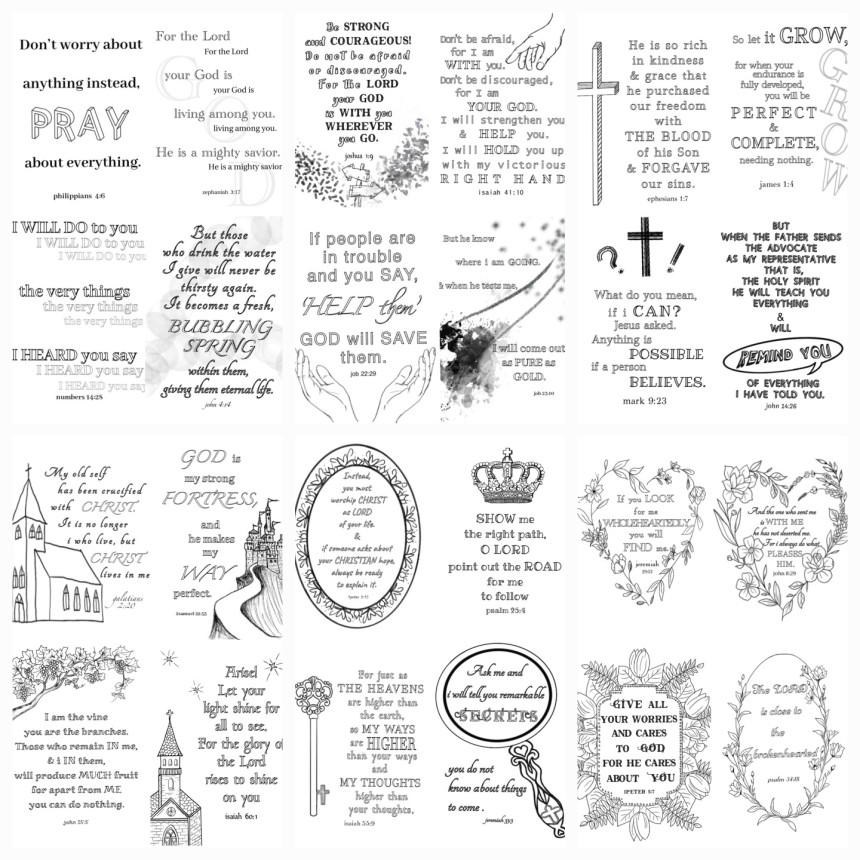 Don't worry about
anything instead,
PRAY
about everything.
philippians 4:6
For the Lord
For the Lord
your God is
your God is
living among you.
living among you.
He is a mighty savior.
He is a mighty savior
GOD
zephaniah 3:17
Be STRONG
and COURAGEOUS!
Do not be afraid
or discouraged.
For the LORD
your GOD
is WITH you
WHEREVER
you GO.
joshua 1:9
Don't be afraid,
for I am
WITH you.
Don't be discouraged,
for I am
YOUR GOD.
I will strengthen you
& HELP you.
I will HOLD you up
with my victorious
RIGHT HAND
isaiah 41:10
He is so rich
in kindness
& grace that
he purchased
our freedom
with
THE BLOOD
of his Son
& FORGAVE
our sins.
ephesians 1:7
So let it GROW,
for when your
endurance is
fully developed,
you will be
PERFECT
&
COMPLETE,
needing nothing.
james 1:4
GROW
I WILL DO to you
I WILL DO to you
I WILL DO to you
the very things
the very things
the very things
I HEARD you say
I HEARD you say
I HEARD you say
numbers 14:28
But those
who drink the water
I give will never be
thirsty again.
It becomes a fresh,
BUBBLING
SPRING
within them,
giving them eternal life.
john 4:14
If people are
in trouble
and you SAY,
'HELP them'
GOD will SAVE
them.
job 22:29
But he know
where i am GOING.
& when he tests me,
I will come out
as PURE as
GOLD.
job 23:10
? !
What do you mean,
if i CAN?
Jesus asked.
Anything is
POSSIBLE
if a person
BELIEVES.
mark 9:23
BUT
WHEN THE FATHER SENDS
THE ADVOCATE
AS MY REPRESENTATIVE
THAT IS,
THE HOLY SPIRIT
HE WILL TEACH YOU
EVERYTHING
&
WILL
REMIND YOU
OF EVERYTHING
I HAVE TOLD YOU.
john 14:26
My old self
has been crucified
with CHRIST.
It is no longer
i who live, but
CHRIST
lives in me
galatians
2:20
GOD is
my strong
FORTRESS,
and
he makes
my
WAY
perfect.
2samuel 22:33
Instead,
you must
worship CHRIST
as LORD
of your life.
&
if someone asks about
your CHRISTIAN hope,
always be ready
to explain it.
1peter 3:15
SHOW me
the right path,
O LORD
point out the ROAD
for me
to follow
psalm 25:4
If you LOOK
for me
WHOLEHEARTEDLY,
you will
FIND me.
jeremiah
29:13
And the one who sent me
is WITH ME
he has not deserted me.
For i always do what
PLEASES
HIM.
john 8:29
I am the vine
you are the branches.
Those who remain IN me,
& i IN them,
will produce MUCH fruit
for apart from ME
you can do nothing.
john 15:5
Arise!
Let your
light shine for
all to see.
For the glory of
the Lord
rises to shine
on you
isaiah 60:1
For just as
THE HEAVENS
are higher than
the earth,
so MY WAYS
are HIGHER
than your ways
and
MY THOUGHTS
higher than
your thoughts,
isaiah 55:9
Ask me and
i will tell you remarkable
SECRETS
you do not
know about things
to come .
jeremiah 33:3
GIVE ALL
YOUR WORRIES
AND CARES
TO GOD
FOR HE CARES
ABOUT YOU
1PETER 5:7
The LORD
is close to
the
brokenhearted
psalm 34:18